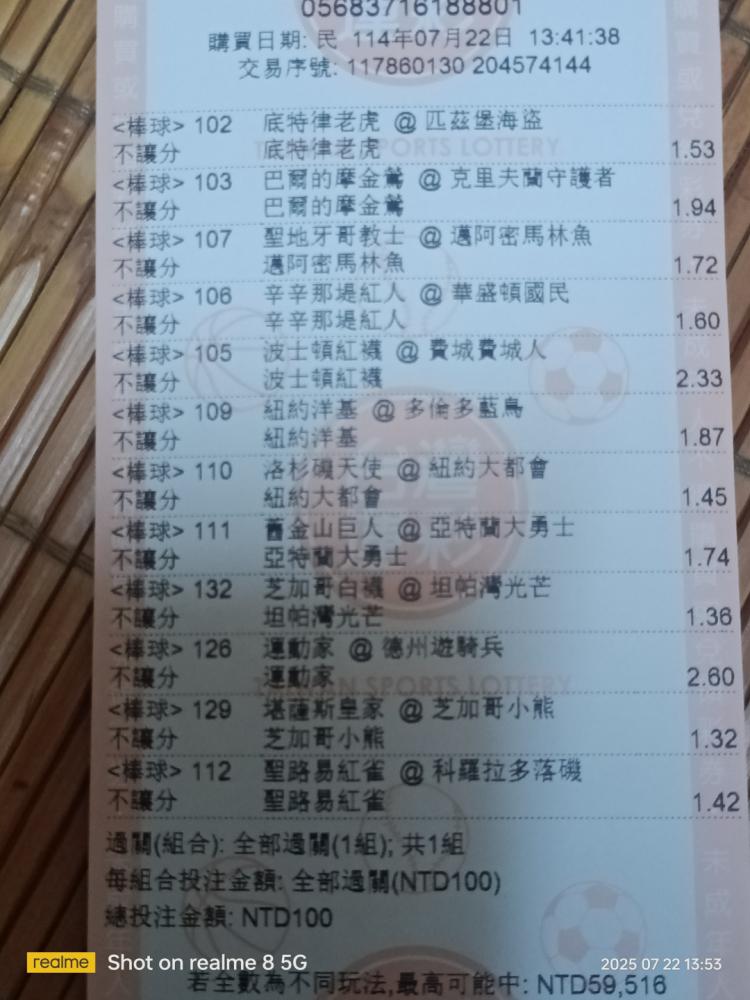 05683716188801
購買日期: 民 114年07月22日 13:41:38
交易序號: 117860130 204574144
<棒球> 102 底特律老虎 @ 匹茲堡海盜
不讓分 底特律老虎 1.53
<棒球> 103 巴爾的摩金鶯 @ 克里夫蘭守護者
不讓分 巴爾的摩金鶯 1.94
<棒球> 107 聖地牙哥教士 @ 邁阿密馬林魚
不讓分 邁阿密馬林魚 1.72
<棒球> 106 辛辛那堤紅人 @ 華盛頓國民
不讓分 辛辛那堤紅人 1.60
<棒球> 105 波士頓紅襪 @ 費城費城人
不讓分 波士頓紅襪 2.33
<棒球> 109 紐約洋基 @ 多倫多藍鳥
不讓分 紐約洋基 1.87
<棒球> 110 洛杉磯天使 @ 紐約大都會
不讓分 紐約大都會 1.45
<棒球> 111 舊金山巨人 @ 亞特蘭大勇士
不讓分 亞特蘭大勇士 1.74
<棒球> 132 芝加哥白襪 @ 坦帕灣光芒
不讓分 坦帕灣光芒 1.36
<棒球> 126 運動家 @ 德州遊騎兵
不讓分 運動家 2.60
<棒球> 129 堪薩斯皇家 @ 芝加哥小熊
不讓分 芝加哥小熊 1.32
<棒球> 112 聖路易紅雀 @ 科羅拉多落磯
不讓分 聖路易紅雀 1.42
過關(組合): 全部過關(1組); 共1組
每組合投注金額: 全部過關(NTD100)
總投注金額: NTD100
若全數為不同玩法,最高可能中: NTD59,516
realme Shot on realme 8 5G
2025 07 22 13:53